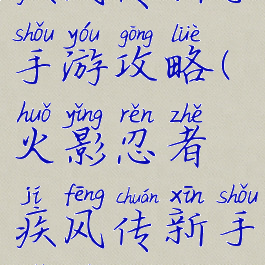 shǒu yóu gōng lüè
手游攻略(
huǒ yǐng rěn zhě
火影忍者
jí fēng chuán xīn shǒu
疾风传新手